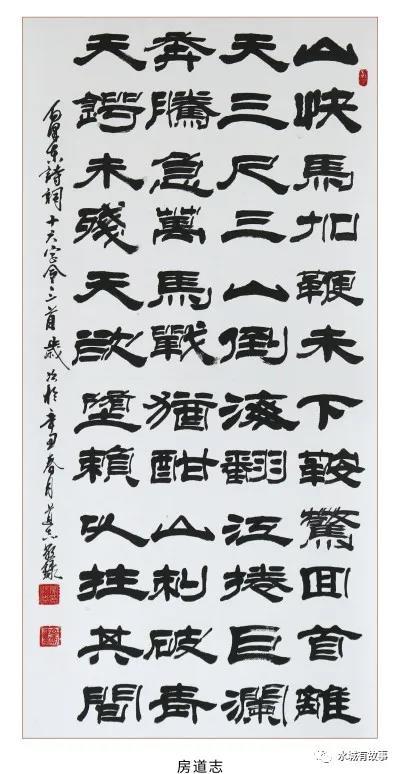 山快馬加鞭未下鞍驚回首離
天三尺三山倒海翻江捲巨瀾
奔騰急萬馬戰猶酣山刺破青
天鍔未殘天欲墮賴以拄其間
毛澤東詩詞十六字令三首歲次於辛丑春月道志敬録
房道志
水城有故事